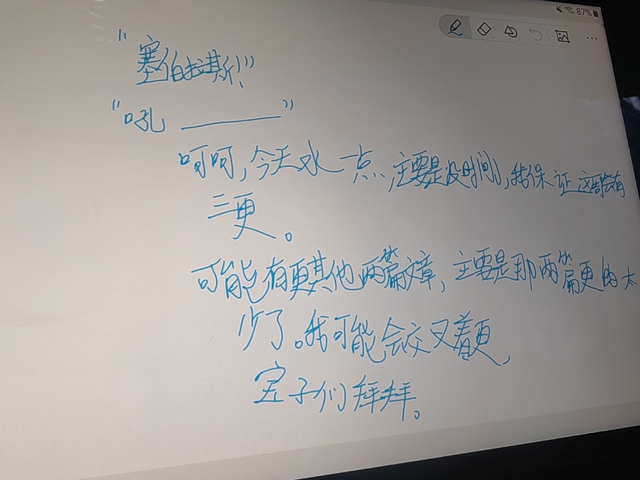 87%
"塞伯拉斯!"
"吼 ———"
呵呵,今天水一点,主要是没时间,我保证这周会有
三更。
可能有更其他两篇文章,主要是那两篇更的太
少了。我可能会交叉着更,
宝子们拜拜。